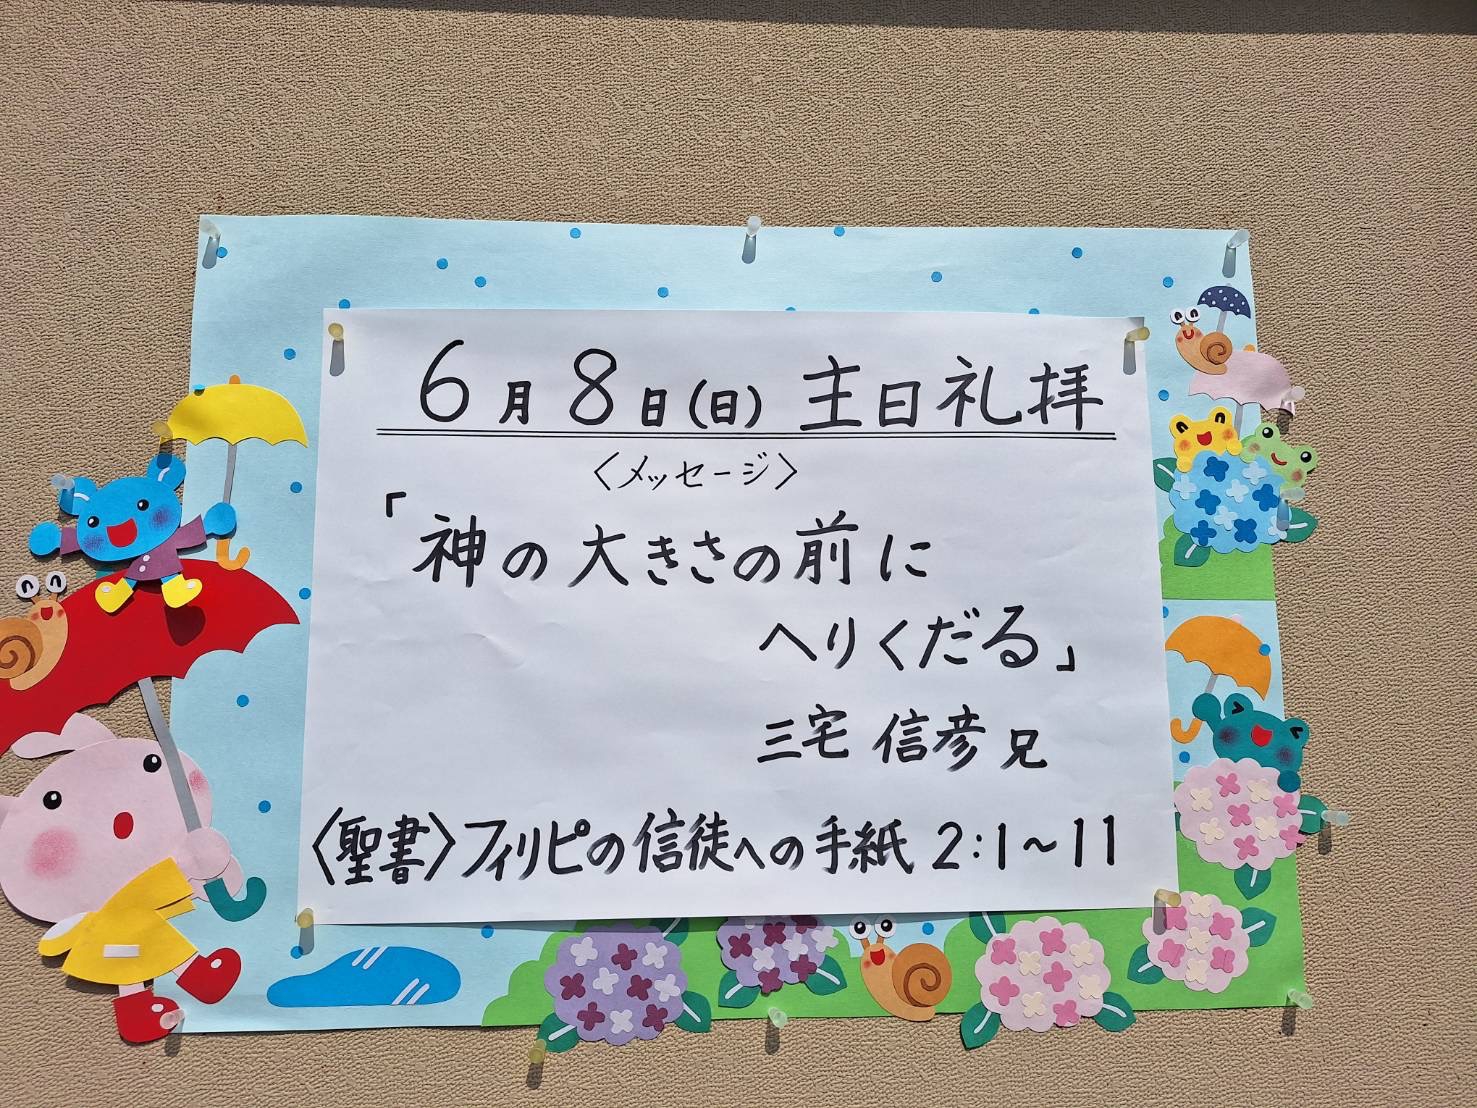 6月8日(日) 主日礼拝
〈メッセージ〉
「神の大きさの前に
へりくだる」
三宅 信彦 兄
〈聖書〉フィリピの信徒への手紙 2:1~11